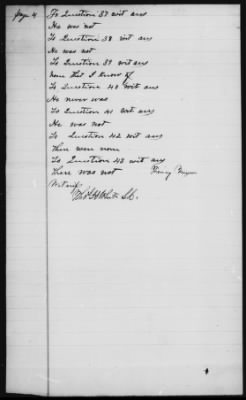 page 4
To Question 37 wit ans
He was not
To Question 38 wit ans
He was not
To Question 39 wit ans
none that I know of
To Question 40 wit ans
He never was
To Question 41 wit ans
He was not
To Question 42 wit ans
there were none
To Question 43 wit ans
there was not Henry
Witness